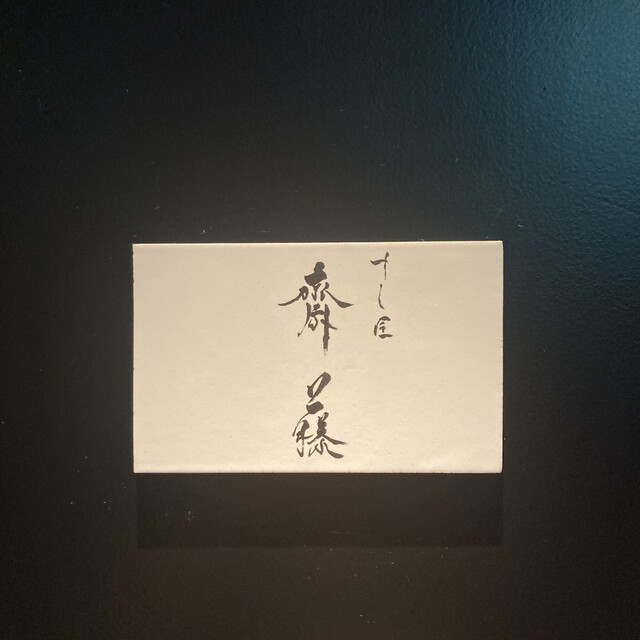 すし屋
齋藤